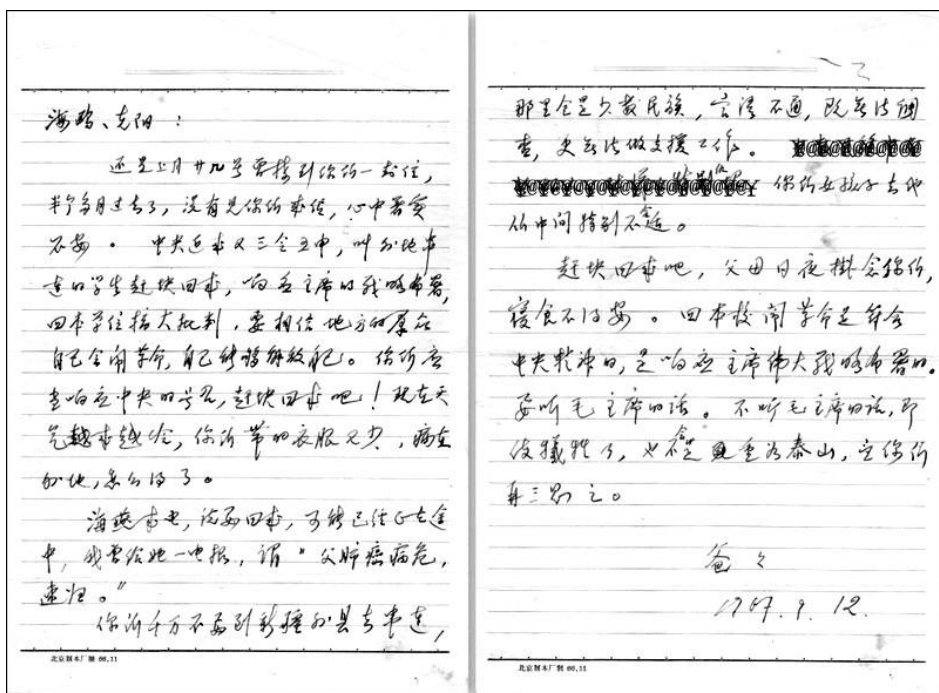 海鸥、克阳：
还是上月廿九号曾接到你们一封信，
半个多月过去了，没有见你们来信，心中着实
不安。中央近来又三令五申，叫外地串
连的学生赶块回来，响应主席的战略布署，
回本单位搞大批判，要相信地方的群众
自己会闹革命，自己能够解放自己。你们应
当响应中央的号召，赶块回来吧！现在天
气越来越冷，你们带的衣服又少，病在
外地，怎么得了。
海燕来电，说要回来，可能已经正在途
中，我曾给她一电报，谓“父肺癌病危，
速归。”
你们千万不要到新疆外县去串连，
北京制本厂制 66.11
那里全是少数民族，言语不通，既无法调
查，更无法做支援工作。
你们女孩子去他
们中间特别不合适。
赶块回来吧，父母日夜掛念你们，
寝食不得安。回本校闹革命是符合
中央精神的，是响应主席伟大战略布署的。
要听毛主席的话。不听毛主席的话，即
使犠牲了，也不会是重如泰山，望你们
再三思之。
爸々
1967.9.12.
北京制本厂制 66.11